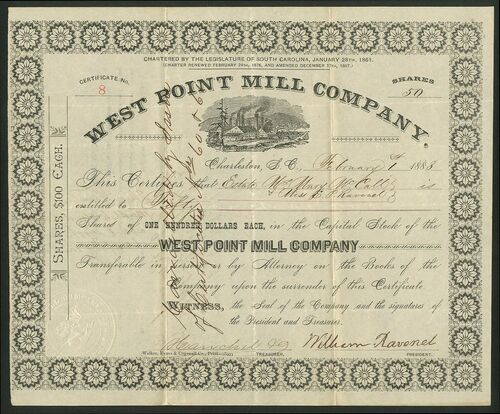 CHARTERED BY THE LEGISLATURE OF SOUTH CAROLINA, JANUARY 28TH, 1861.
(CHARTER RENEWED FEBRUARY 20TH, 1876, AND AMENDED DECEMBER 17TH, 1887.)
CERTIFICATE No.
8
SHARES
50
WEST POINT MILL COMPANY.
Charleston, S.C., February 1888
This Certifies that Estate Wm Mure is
& Thos Ravenel
entitled to Fifty
Shares of ONE HUNDRED DOLLARS EACH, in the Capital Stock of the
WEST POINT MILL COMPANY
Transferable in person or by Attorney on the Books of the
Company upon the surrender of this Certificate
WITNESS, the Seal of the Company and the signatures of
the President and Treasurer.
William Ravenel
Walker, Evans & Cogswell Co., Print
TREASURER.
PRESIDENT.
SHARES, $100 EACH.